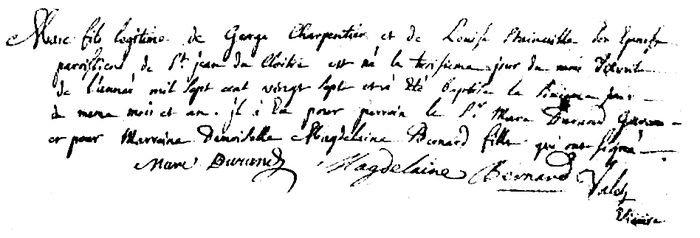 Marc fils legitime de George Charpentier et de Louise son Epouse
paroissiens de St jean du Cloitre est né le troisieme jour du mois d'avril
de l'année mil sept cent vingt sept et a été baptisé le jour
du meme mois et an. il a Eu pour parrain le Sr Marc Durand
et pour Marraine Damoiselle Magdelaine Bernard fille qui ont signé
Marc Durand Magdelaine Bernard Valet
Vicaire